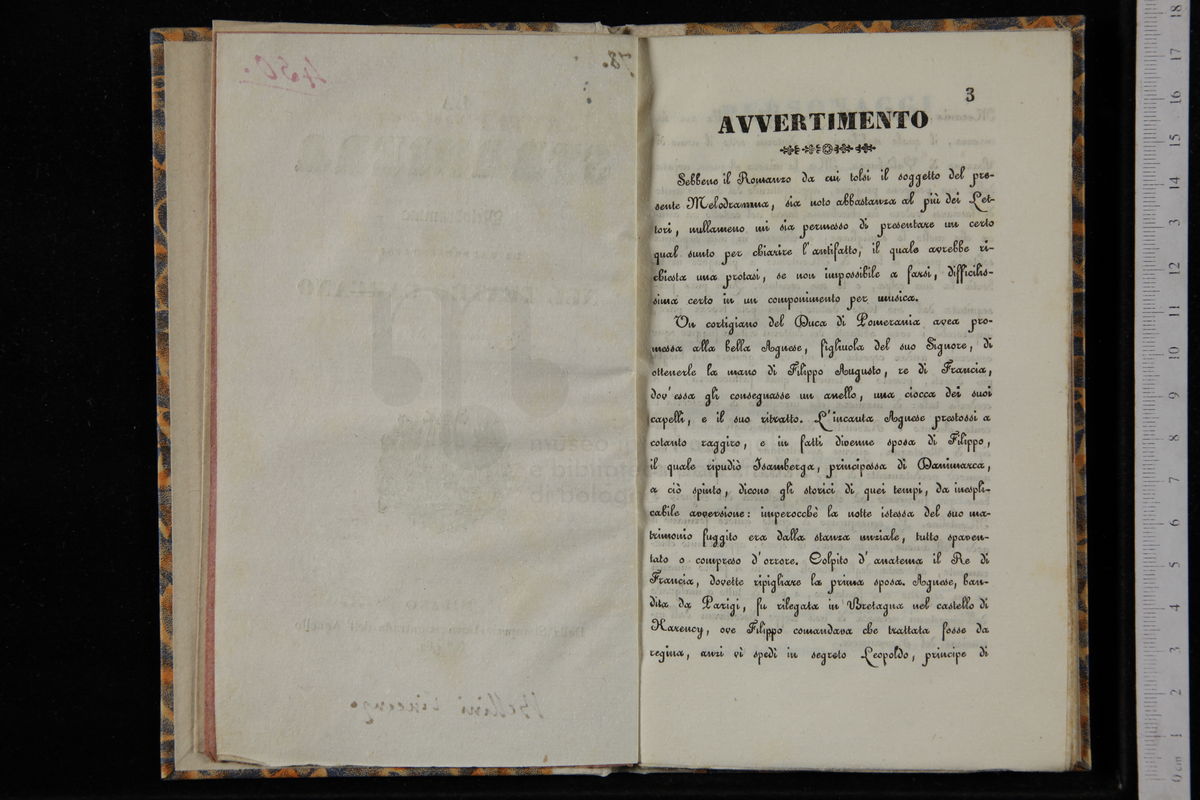 3
AVVERTIMENTO
Sebbene il Romanzo da cui tolsi il soggetto del pre-
sente Melodramma, sia noto abbastanza al più dei Let-
tori, nullameno mi sia permesso di presentare un certo
qual sunto per chiarire l'antifatto, il quale avrebbe ri-
chiesta una protasi, se non impossibile a farsi, difficilis-
sima certo in un componimento per musica.
Un cortigiano del Duca di Pomerania avea pro-
messa alla bella Agnese, figliuola del suo Signore, di
ottenerle la mano di Filippo Augusto, re di Francia,
dov'essa gli consegnasse un anello, una ciocca dei suoi
capelli, e il suo ritratto. L'incauta Agnese prestossi a
cotanto raggiro, e in fatti divenne sposa di Filippo,
il quale ripudiò Isamberga, principessa di Danimarca,
a ciò spinto, dicono gli storici di quei tempi, da inespli-
cabile avversione: imperocchè la notte istessa del suo ma-
trimonio fuggito era dalla stanza nuziale, tutto spaven-
tato o compreso d'orrore. Colpito d'anatema il Re di
Francia, dovette ripigliare la prima sposa. Agnese, ban-
dita da Parigi, fu rilegata in Bretagna nel castello di
Karency, ove Filippo comandava che trattata fosse da
regina, anzi vi spedì in segreto Leopoldo, principe di
museo
e bibliote
di bologn